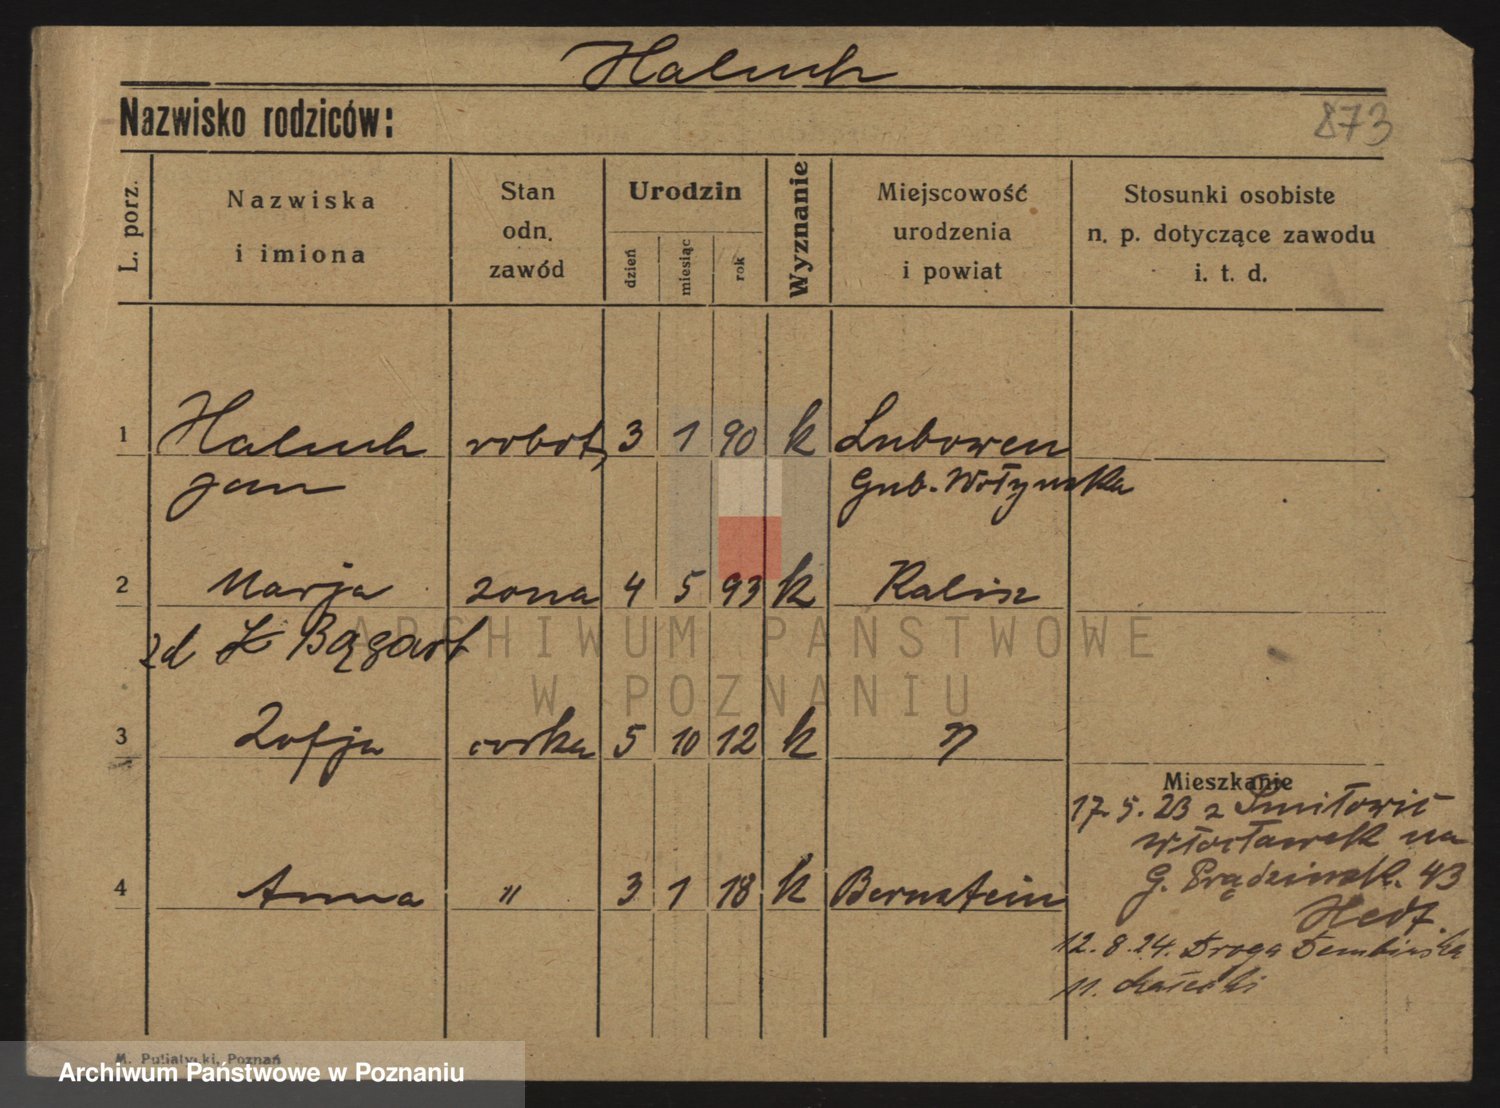 Haluch
Nazwisko rodziców:
873
L. porz.
Nazwiska
i imiona
Stan
odn.
zawód
Urodzin
dzień
miesiąc
rok
Wyznanie
Miejscowość
urodzenia
i powiat
Stosunki osobiste
n. p. dotyczące zawodu
i. t. d.
1 Haluch robot, 3 1 90 k Lubowen
Jan Gub. Wołynska
2 Marja zona 4 5 93 k Kalisz
zd Bągart
3 Zofja corka 5 10 12 k "
Mieszkanie
17. 5. 23 z Smiłowic
Włocławek na
4 Anna " 3 1 18 k Bernstein
G. Prądzinsk. 43
12. 8. 24. Droga Dembinska
11.
ARCHIWUM PAŃSTWOWE
W POZNANIU
M. Putiatycki, Poznań
Archiwum Państwowe w Poznaniu